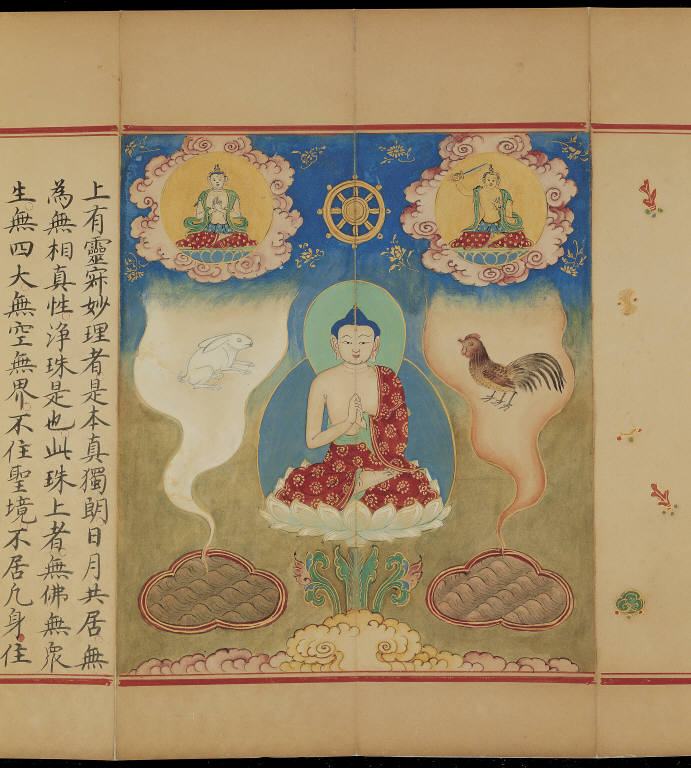 上有靈妙理者是本真獨朗日月共居無
為無相真性浄珠是也此珠上者無佛無衆
生無四大無空無界不住聖境不居凢身住